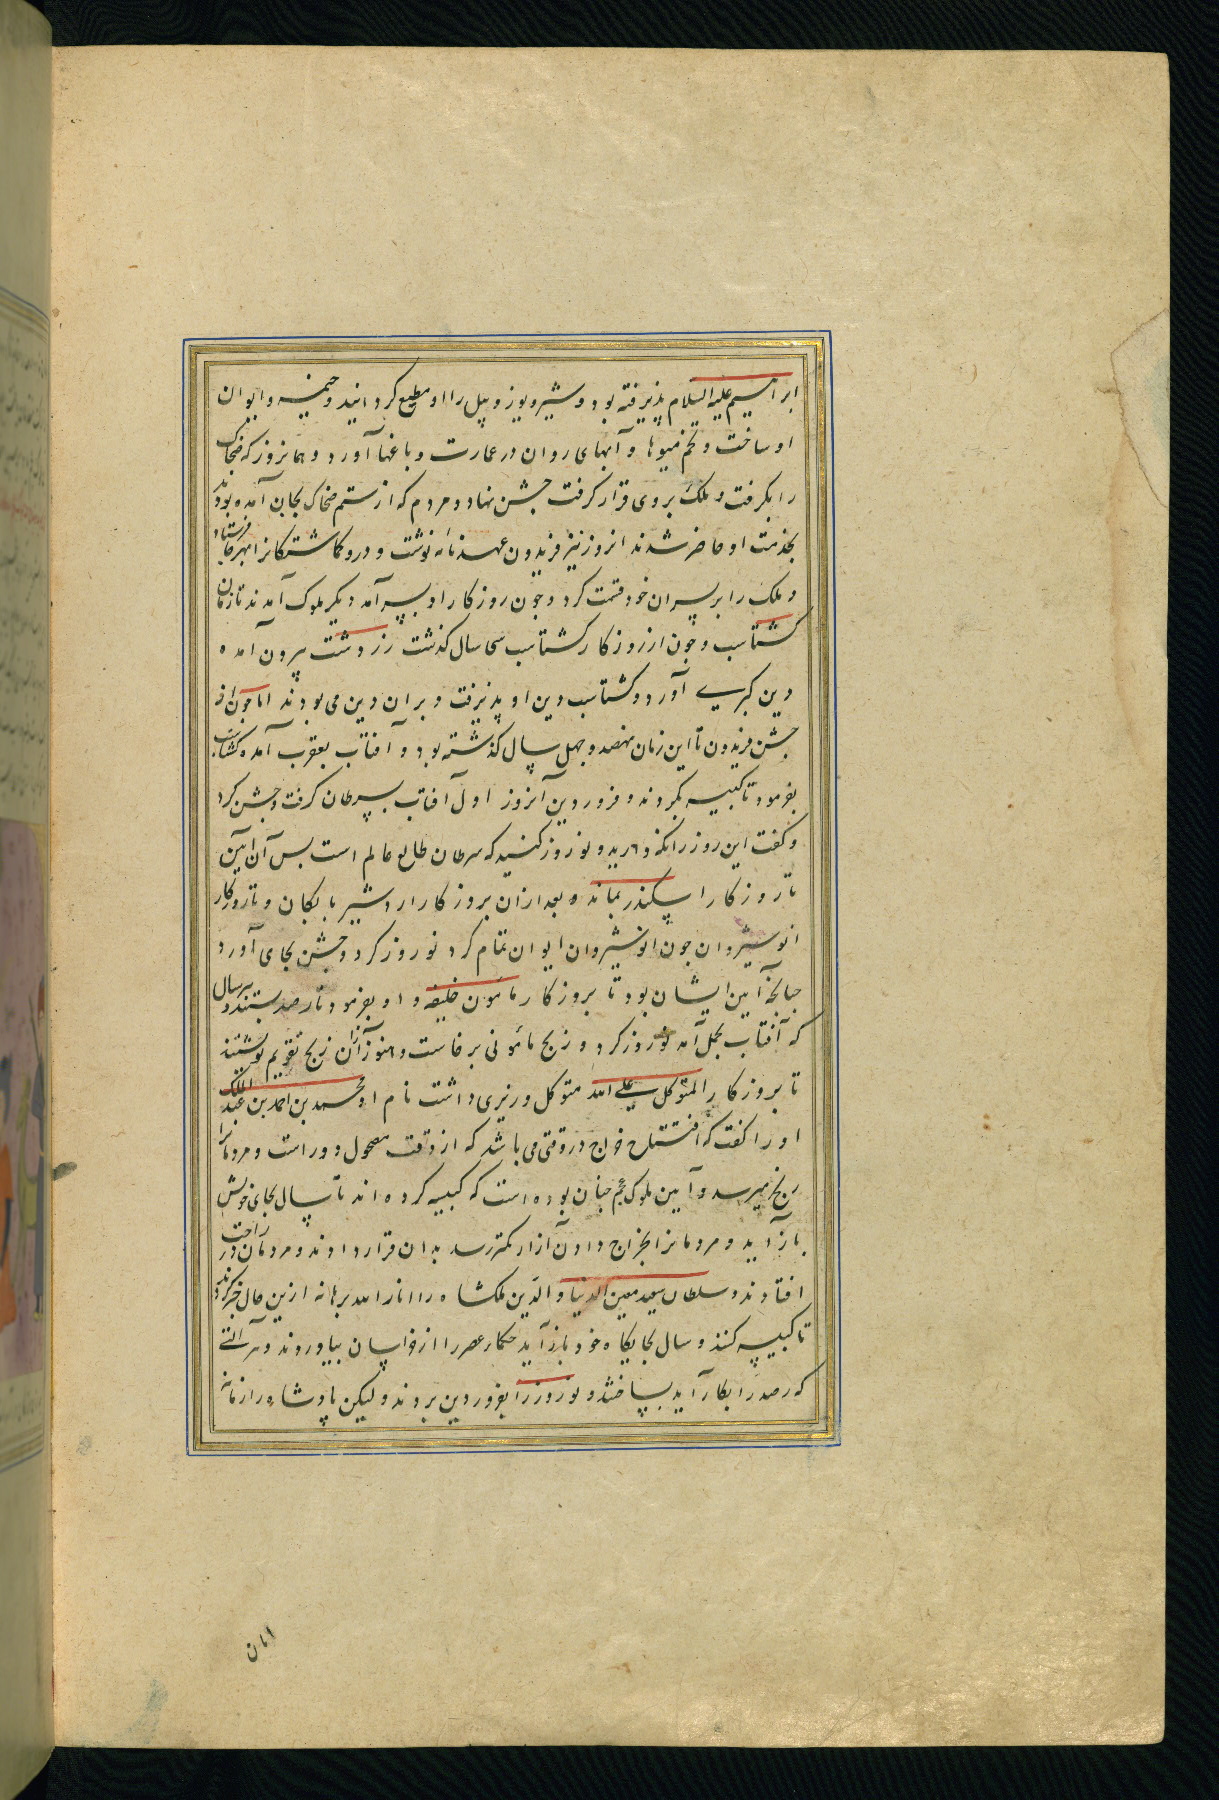 ابراهیم علیه السلام پذیرفته بود و شیر و یوز و پیل را او مطیع گردانید و خیمه و ایوان
او ساخت و تخم میوها و آبهای روان در عمارت و باغها آورد و همانروز که ضحاک
را بگرفت و ملک بروی قرار گرفت جشن نهاد و مردم که از ستم ضحاک بجان آمده بودند
بخدمت او حاضر شدند انروز نیز فریدون عهدنامه نوشت و درو کماشتکانرا بهر جا فرستاد
و ملک را بر پسران خود قسمت کرد و جون روزکار او بسر آمد دیکر ملوک آمدند تا زمان
کشتاسب و جون از روزکار کشتاسب سی سال کذشت زردشت بیرون آمد و
دین کبری آورد و کشتاسب دین او پذیرفت و بران دین می بودند اما جون از
جشن فریدون تا این زمان نهصد و چهل سال کذشته بود و آفتاب بعقرب آمد کشتاسب
بفرمود تا کبیسه کردند و فروردین آنروز اول آفتاب بسرطان کرفت و جشن کرد
و کفت این روز را نکه دارید و نوروز کنید که سرطان طالع عالم است بس آن آیین
تا روزکار اسکندر بماند و بعد ازان بروزکار اردشیر بابکان و تا روزکار
انوشیروان جون انوشیروان ایوان تمام کرد نوروز کرد و جشن بجای آورد
جنانجه آیین ایشان بود تا بروزکار مامون خلیفه و او بفرمود تا رصد بستند و هر سال
که آفتاب بحمل آمد نوروز کرد و زیج مامونی برخاست و هنوز از آن زیج تقویم نویسند
تا بروزکار المتوکل علی الله متوکل وزیری داشت نام او محمد بن احمد بن عبد الملک
او را کفت که افتتاح خراج در وقتی می باشد که از وقت محصول دور است و مردمانرا
رنج میرسد و آیین ملوک عجم جنان بوده است که کبیسه کرده اند تا سال بجای خویش
باز آید و مردمانرا بخراج دادن آزار کمتر رسد بدان قرار دادند و مردمان در راحت
افتادند و سلطان سعید معین الدنیا و الدین ملکشاه را انار الله برهانه ازین حال خبر کردند
تا کبیسه کنند و سال بجایکاه خود باز آید حکماء عصر را از خراسان بیاوردند و هر آلتی
که رصد را بکار آید بساختند و نوروز را بفروردین بردند و لیکن پادشاه را زمانه
امان